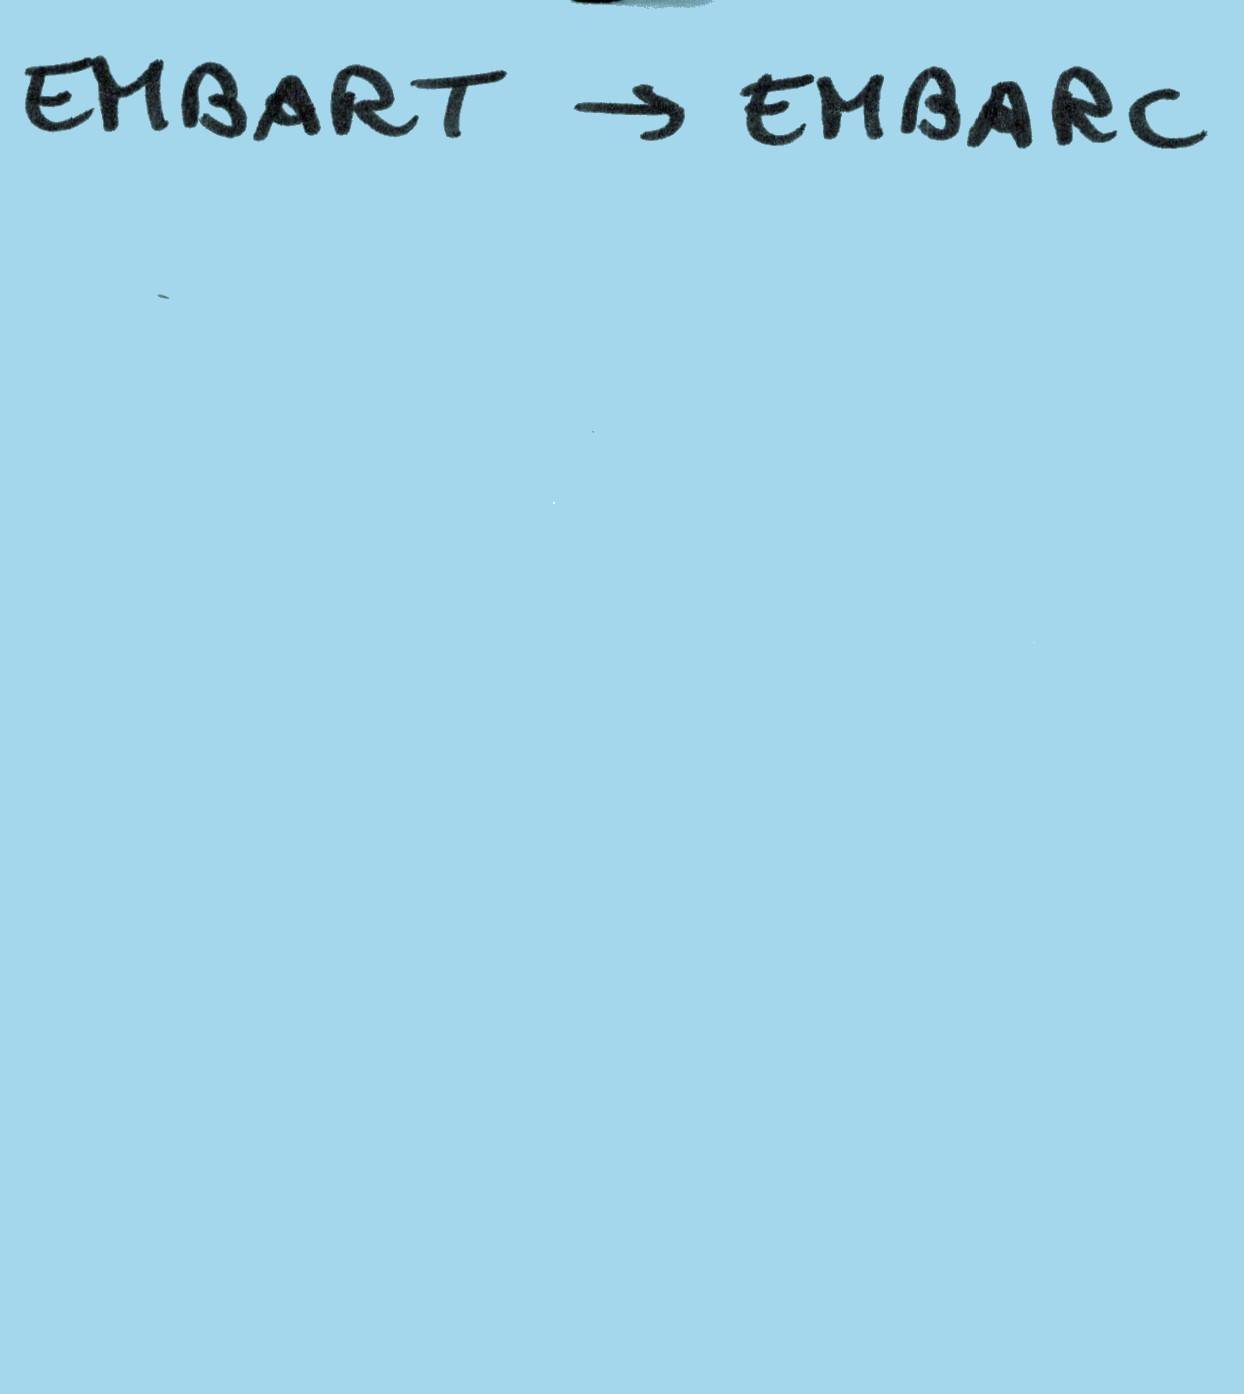 EMBART → EMBARC